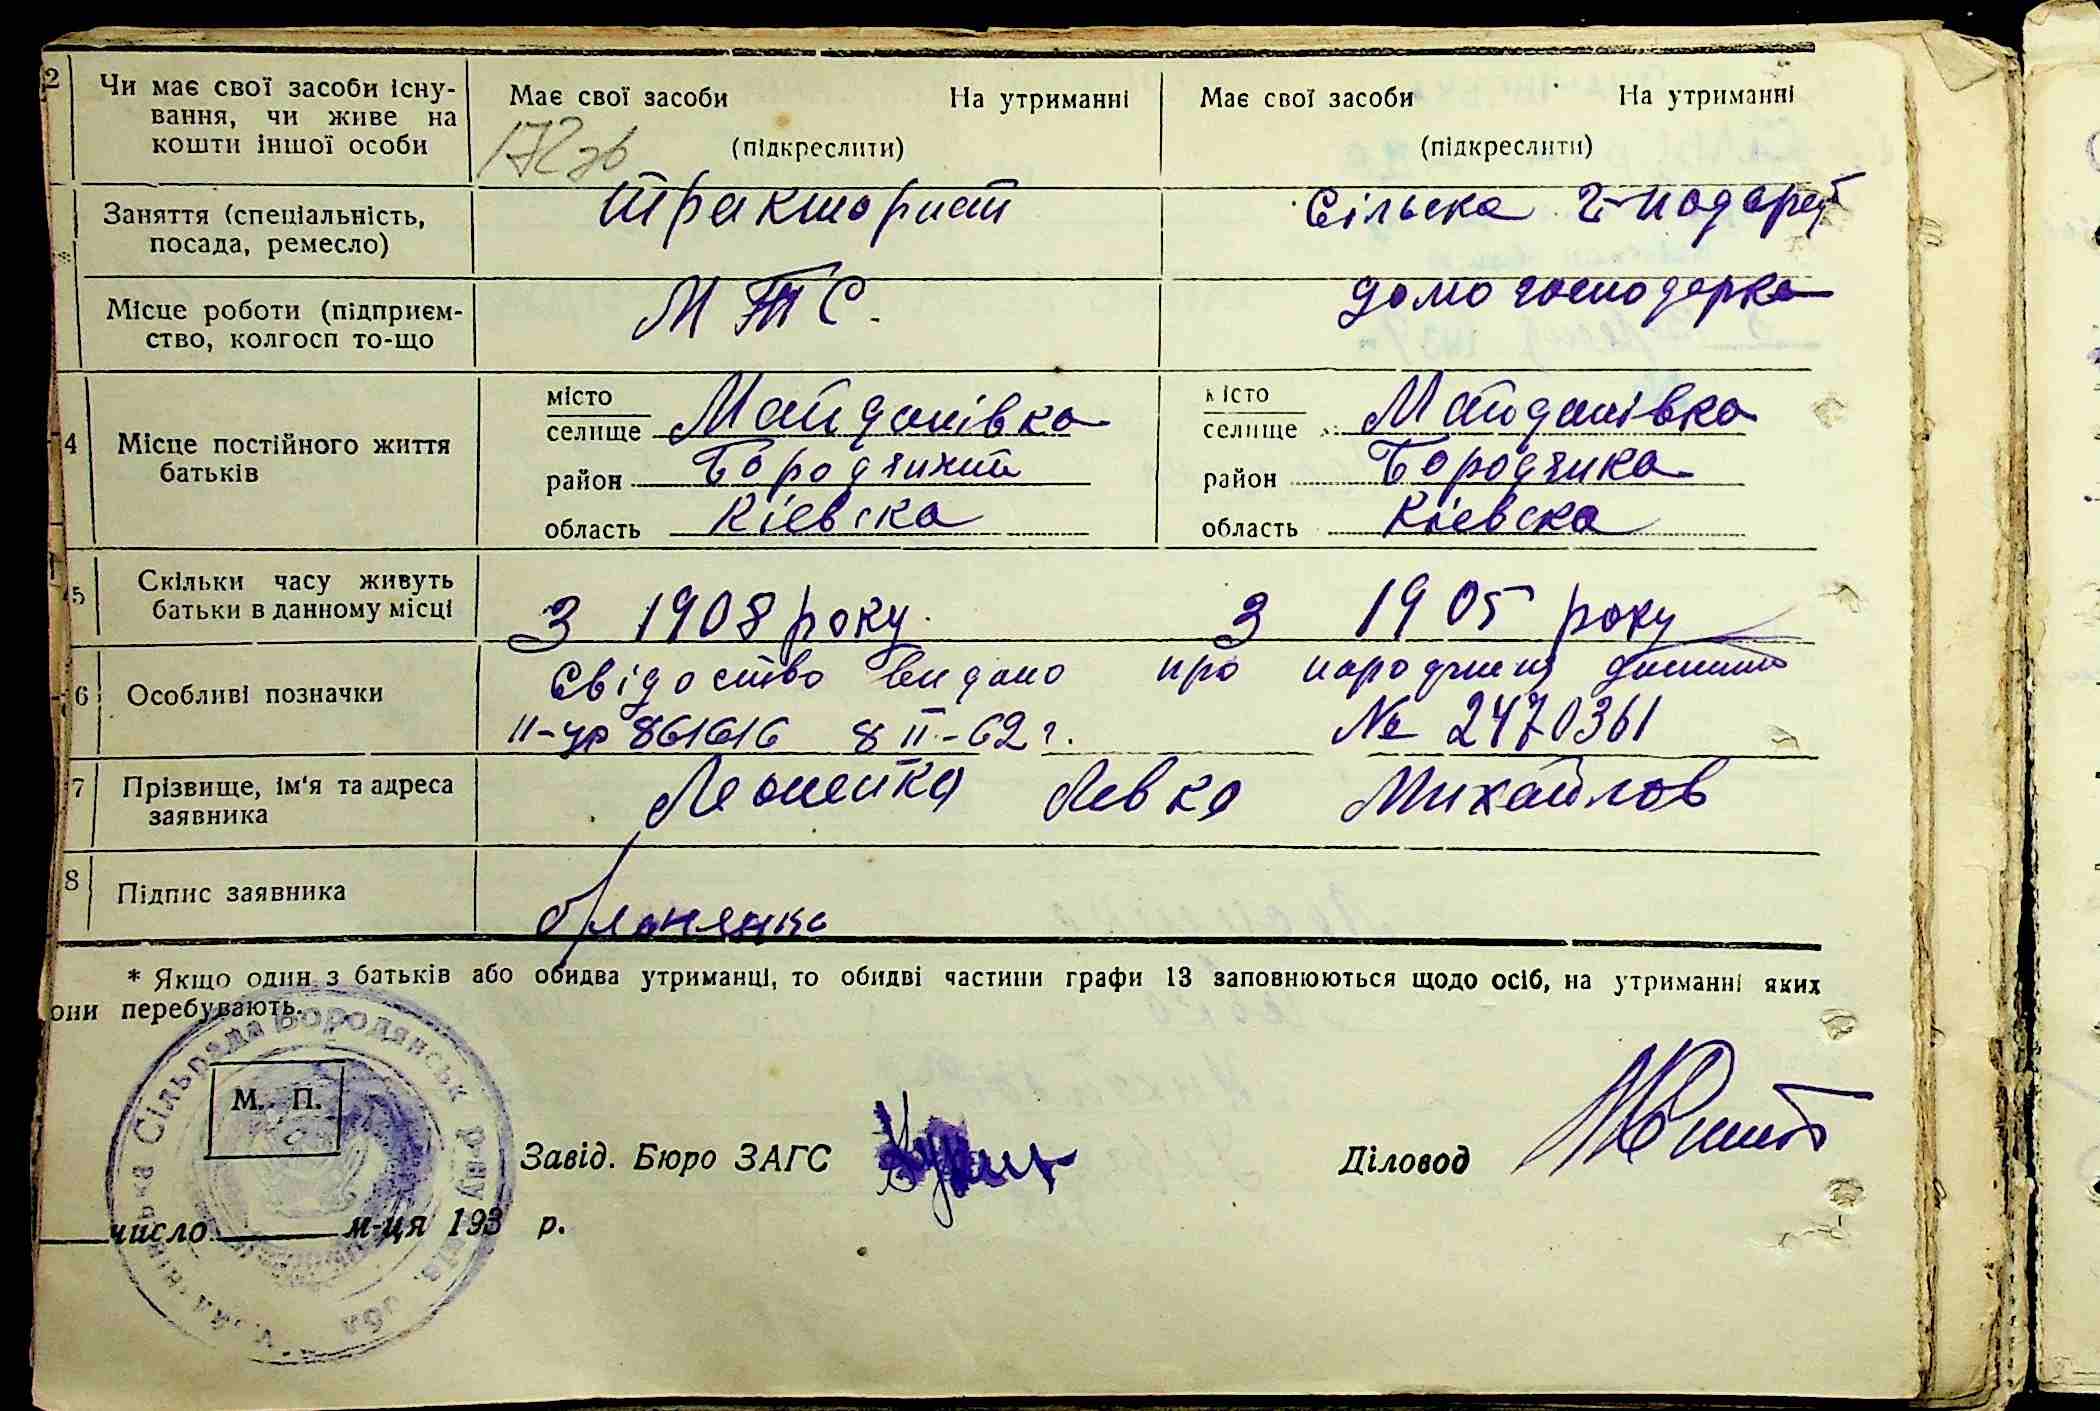 2 Чи має свої засоби існу-
вання, чи живе на
кошти іншої особи
Має свої засоби На утриманні
(підкреслити)
172зв
Має свої засоби На утриманні
(підкреслити)
Заняття (спеціальність,
посада, ремесло)
тракторист
Сільска г-подарст
Місце роботи (підприєм-
ство, колгосп то-що
МТС.
домогосподарка
4 Місце постійного життя
батьків
місто
селище Майданівка
район Бородянский
область Кіевска
місто
селище Майданівка
район Бородянка
область Кіевска
5 Скільки часу живуть
батьки в данному місці
З 1908 року.
З 1905 року
6 Особливі позначки
Свідоство видано про народження
II-ур 861616 8 II-62 г. № 2470361
7 Прізвище, ім'я та адреса
заявника
Леоненко Левко Михайлов
8 Підпис заявника
* Якщо один з батьків або обидва утриманці, то обидві частини графи 13 заповнюються щодо осіб, на утриманні яких
они перебувають.
Сільрада Бородянськ р-ну
М. П.
Завід. Бюро ЗАГС
Діловод
число м-ця 193 р.